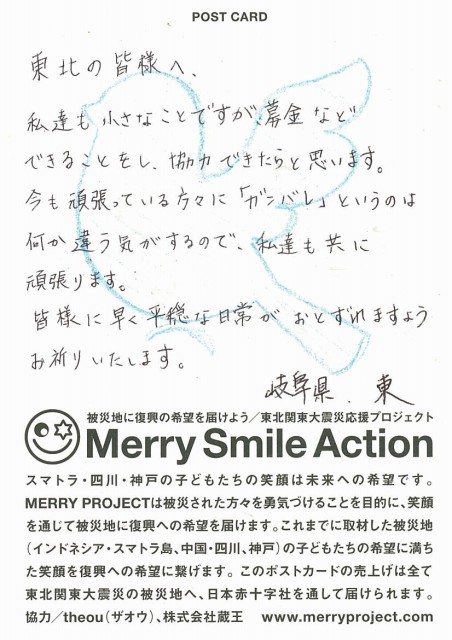 POST CARD
東北の皆様へ、
私達も小さなことですが、募金など
できることをし、協力できたらと思います。
今も頑張っている方々に「ガンバレ」というのは
何か違う気がするので、私達も共に
頑張ります。
皆様に早く平穏な日常がおとずれますよう
お祈りいたします。
岐阜県. 東
被災地に復興の希望を届けよう/東北関東大震災応援プロジェクト
Merry Smile Action
スマトラ・四川・神戸の子どもたちの笑顔は未来への希望です。
MERRY PROJECTは被災された方々を勇気づけることを目的に、笑顔
を通じて被災地に復興への希望を届けます。これまでに取材した被災地
(インドネシア・スマトラ島、中国・四川、神戸)の子どもたちの希望に満ち
た笑顔を復興への希望に繋げます。このポストカードの売上げは全て
東北関東大震災の被災地へ、日本赤十字社を通して届けられます。
協力/theou(ザオウ)、株式会社蔵王 www.merryproject.com